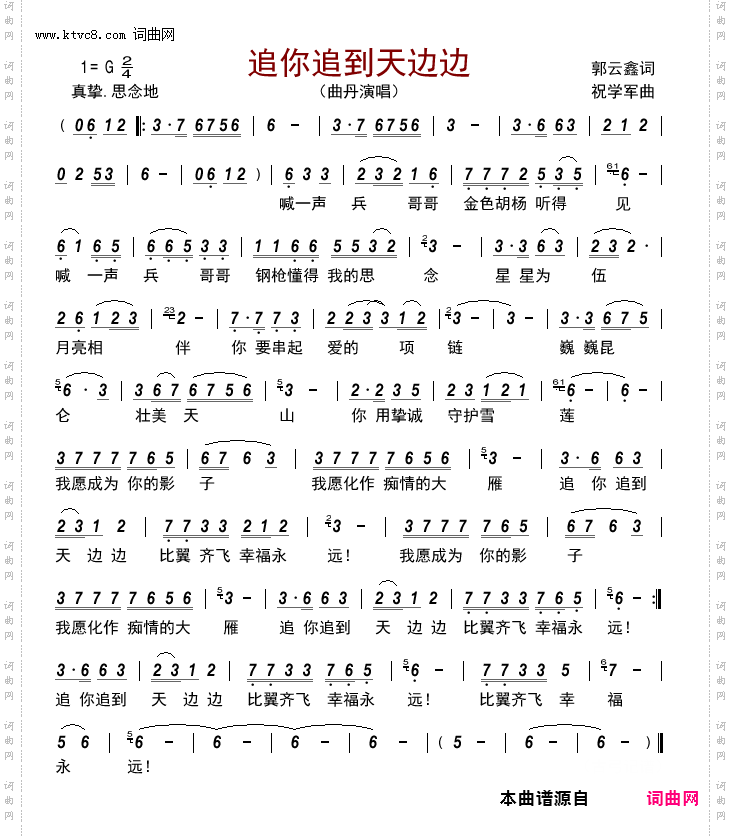 www.ktvc8.com 词曲网
追你追到天边边
1=G 2/4
郭云鑫词
真挚.思念地
（曲丹演唱）
祝学军曲
( 06 12 |: 3·7 6756 | 6 - | 3·7 6756 | 3 - | 3·6 63 | 212 |
02 53 | 6 - | 06 12 ) | 6 33 | 232 16 | 7772 535 | 61 6 - |
喊一声 兵 哥哥 金色胡杨 听得 见
61 65 | 665 33 | 1166 5532 | 2 3 - | 3·3 63 | 232· |
喊 一声 兵 哥哥 钢枪懂得 我的思 念 星 星为 伍
26 123 | 23 2 - | 7·7 73 | 223 312 | 2 3 - | 3 - | 3·3 675 |
月亮相 伴 你 要串起 爱的 项 链 巍 巍昆
5 6· 3 | 367 6756 | 5 3 - | 2·2 35 | 23 121 | 61 6 - | 6 - |
仑 壮美 天 山 你 用挚诚 守护雪 莲
3777 765 | 67 63 | 3777 7656 | 5 3 - | 3·6 63 |
我愿成为 你的影 子 我愿化作 痴情的大 雁 追 你 追到
23 12 | 7733 212 | 2 3 - | 3777 765 | 67 63 |
天 边 边 比翼 齐飞 幸福永 远！ 我愿成为 你的影 子
3777 7656 | 5 3 - | 3·6 63 | 23 12 | 7733 765 | 5 6 - :|
我愿化作 痴情的大 雁 追 你追到 天 边 边 比翼齐飞 幸福永 远！
3·6 63 | 23 12 | 7733 765 | 5 6 - | 7733 5 | 6 7 - |
追 你追到 天 边 边 比翼齐飞 幸福永 远！ 比翼齐飞 幸 福
5 6 | 5 6 - | 6 - | 6 - | 6 - | ( 5 - | 6 - | 6 - ) |
永 远！
本曲谱源自 词曲网